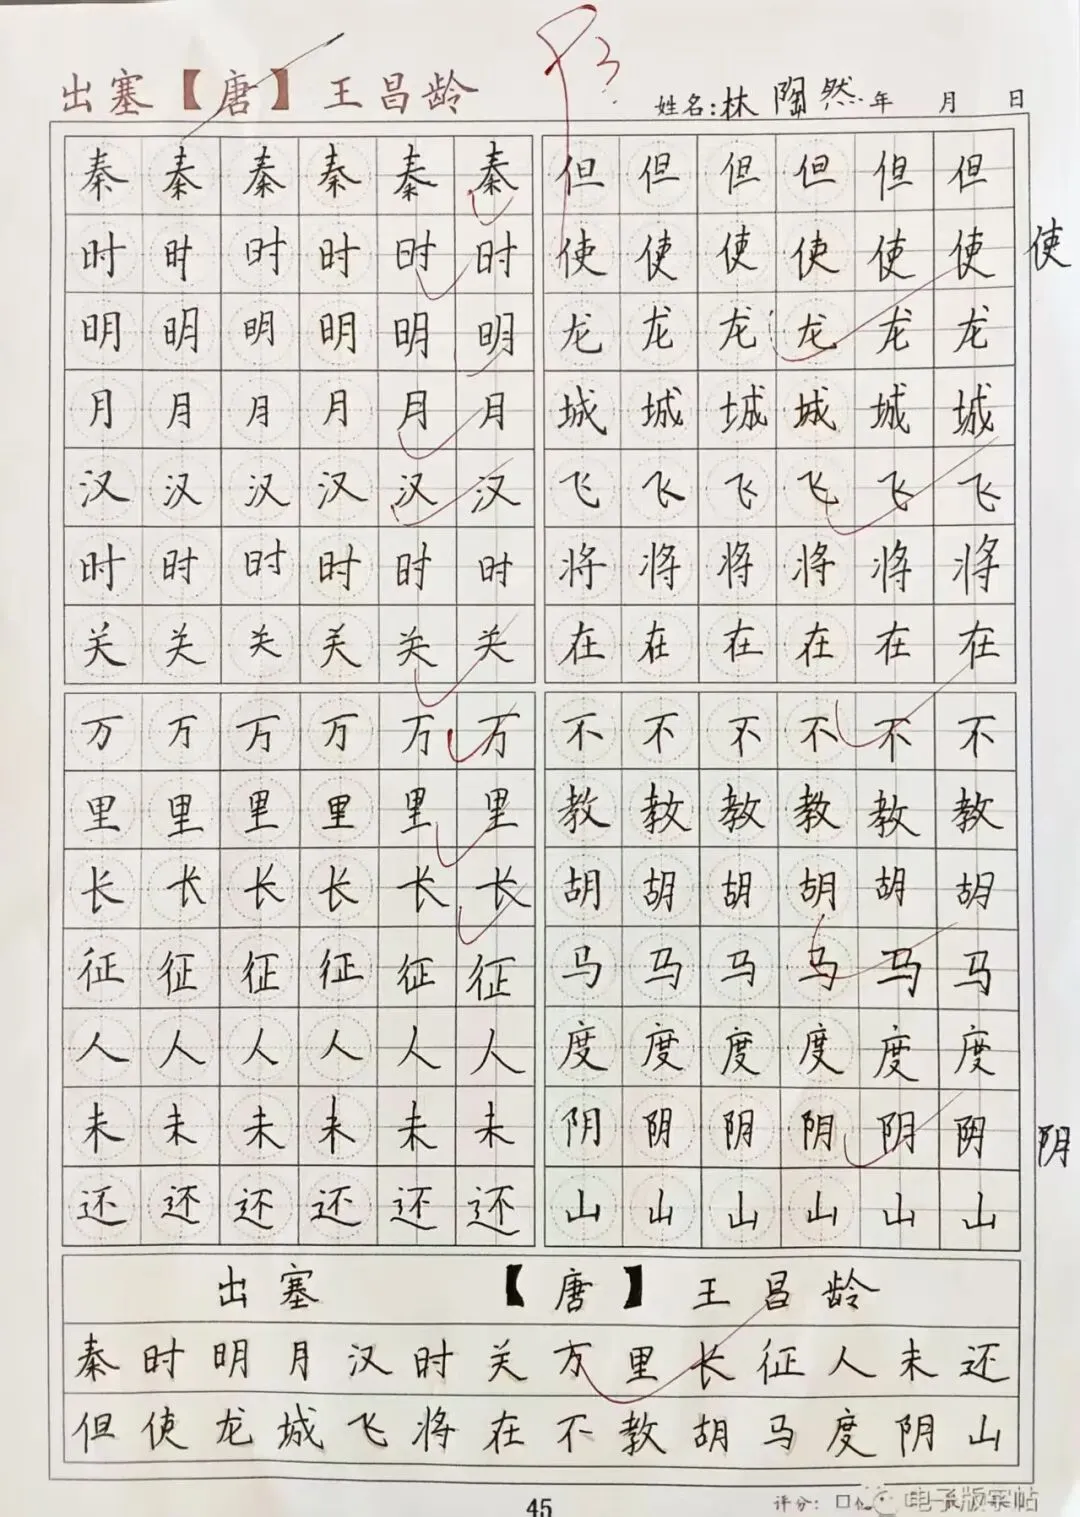 出塞【唐】王昌龄
姓名:林陶然 年 月 日
秦秦秦秦秦秦 但但但但但但
时时时时时时 使使使使使使 使
明明明明明明 龙龙龙龙龙龙
月月月月月月 城城城城城城
汉汉汉汉汉汉 飞飞飞飞飞飞
时时时时时时 将将将将将将
关关关关关关 在在在在在在
万万万万万万 不不不不不不
里里里里里里 教教教教教教
长长长长长长 胡胡胡胡胡胡
征征征征征征 马马马马马马
人人人人人人 度度度度度度
未未未未未未 阴阴阴阴阴阴 阴
还还还还还还 山山山山山山
出塞 【唐】 王昌龄
秦时明月汉时关万里长征人未还
但使龙城飞将在不教胡马度阴山
45
评分: 口
电子版字帖